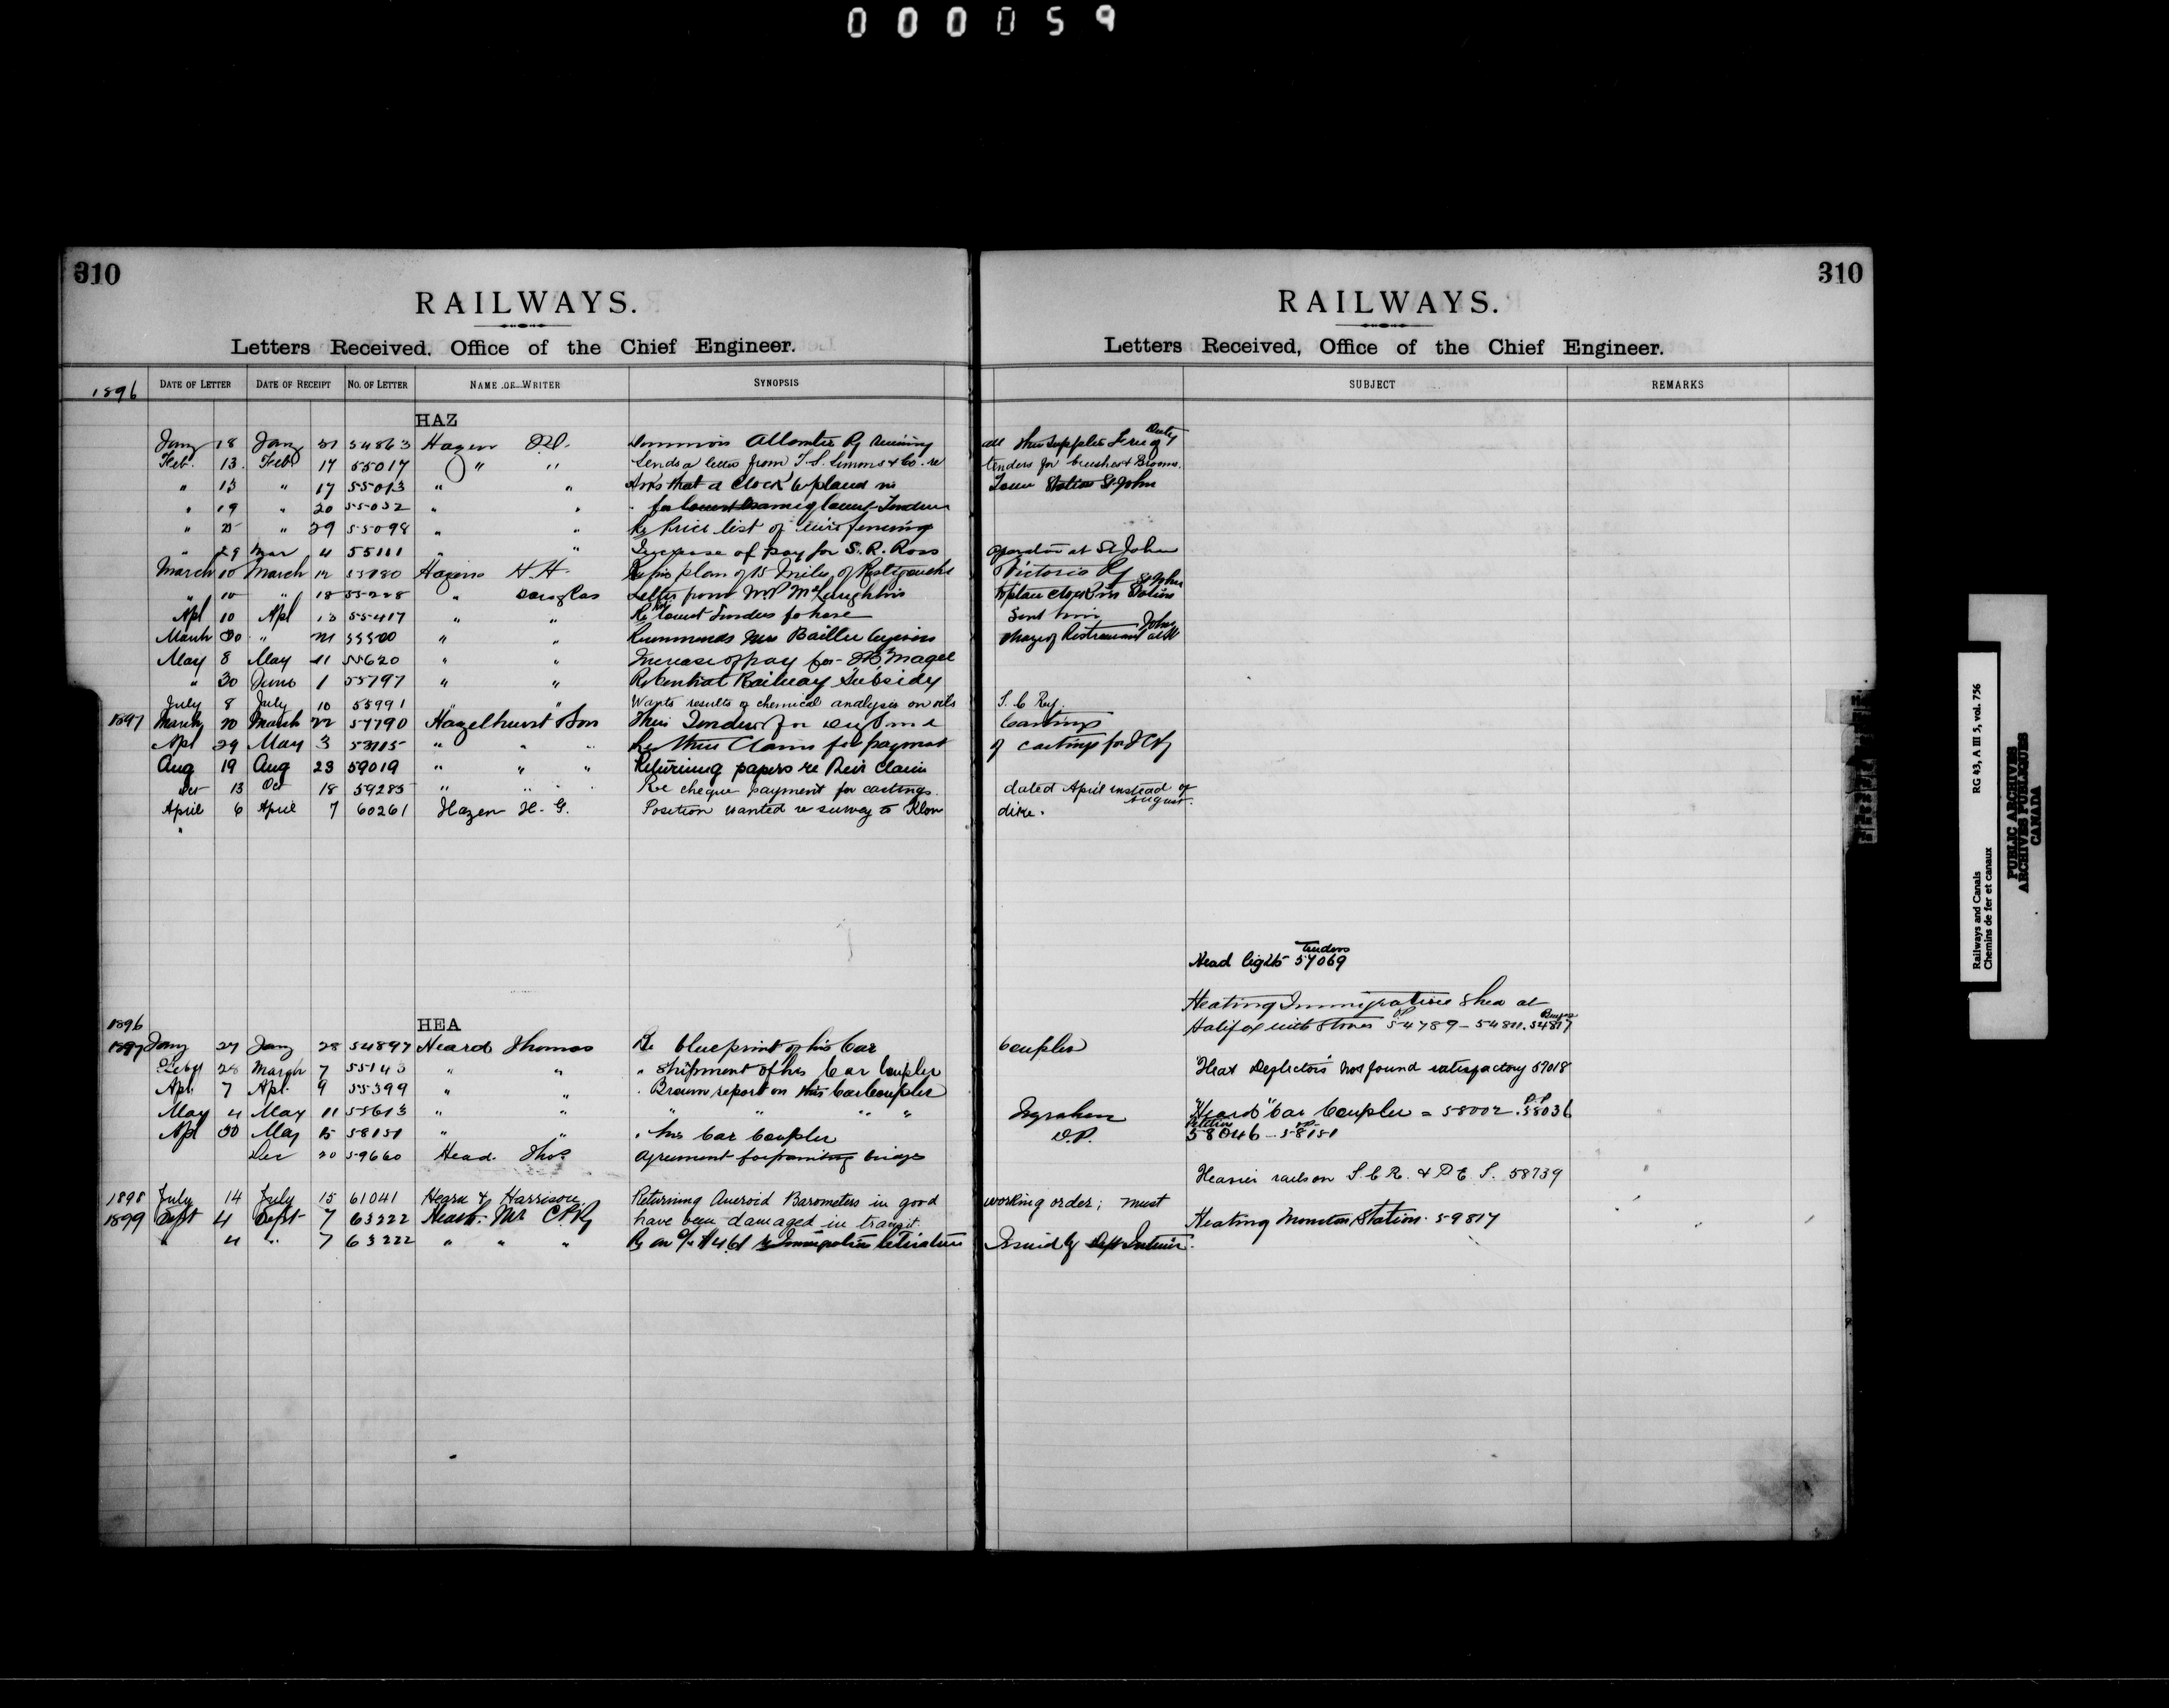 000059
310
RAILWAYS.
Letters Received, Office of the Chief Engineer.
1896 DATE OF LETTER DATE OF RECEIPT NO. OF LETTER NAME OF WRITER SYNOPSIS
HAZ
Jany 18 Jany 21 54863 Hazen all their supplies free of Duty
Feb. 13 Feb 17 55017 " " Sends a letter from T.S. Simms & Co. re tenders for brushes & Brooms.
" 13 " 17 55013 " " Asks that a Clock be placed in Station St John
" 19 " 20 55032 " "
" 25 " 29 55098 " " Re Price list of wire fencing
" 29 Mar 4 55111 " " Increase of pay for S. R. Ross operator at St John
March 10 March 12 55180 Hazen H.H. Re his plan of 15 miles of Restigouche Victoria Ry
" 10 " 18 55228 " Douglas Letter from McLaughlin to place clock in St John Station
Apl 10 Apl 13 55417 " " Re lowest Tenders for hose Sent him
March 30 " 21 55500 " " Recommends Mrs
May 8 May 11 55620 " " Increase of pay for Magee
" 30 June 1 55797 " " Re Central Railway Subsidy
July 8 July 10 55991 " " Wants results of chemical analysis on oils
1897 March 20 March 22 57790 Hazelhurst & Son Their Tender for Castings
Apl 29 May 3 " " " Re their Claim for payment of castings for ICRy
Aug 19 Aug 23 59019 " " " Returning papers re their Claim
Oct 13 Oct 18 59285 " " " Re cheque payment for castings. dated April instead of August.
April 6 April 7 60261 Hazen H. G. Position wanted re survey to Klon dike.
1896
HEA
1897 Jany 27 Jany 28 54897 Heard Thomas Re blueprint of his Car Coupler
Feby 28 March 7 55143 " " " Shipment of his Car Coupler
Apl. 7 Apl. 9 55399 " " " Brown report on this Car Coupler
May 4 May 11 55613 " " " " " " Ingraham
Apl 30 May 15 58151 " " " his Car Coupler D.P.
Dec 20 59660 Head Thos. Agreement for painting bridges
1898 July 14 July 15 61041 Hearn & Harrison Returning Aneroid Barometers in good working order; must
have been damaged in transit.
1899 Sept 4 Sept 7 63222 Heath Mr CPRy
" 4 " 7 63222 " " " Immigration literature Issued by Dept Interior.
310
RAILWAYS.
Letters Received, Office of the Chief Engineer.
SUBJECT REMARKS
Head lights Tenders 57069
Heating Immigration Shed at
Halifax with stoves 54789 - 54811. 54817
"Heat Deflectors" not found satisfactory 57018
"Heard" Car Coupler = 58002. D.P. 58036
58046 - 58151
Heavier rails on I.C.R. & P.E.I. 58739
Heating Moncton Station. 59817
RG 43, A III 5, vol. 756
Railways and Canals
Chemins de fer et canaux
PUBLIC ARCHIVES
ARCHIVES PUBLIQUES
CANADA